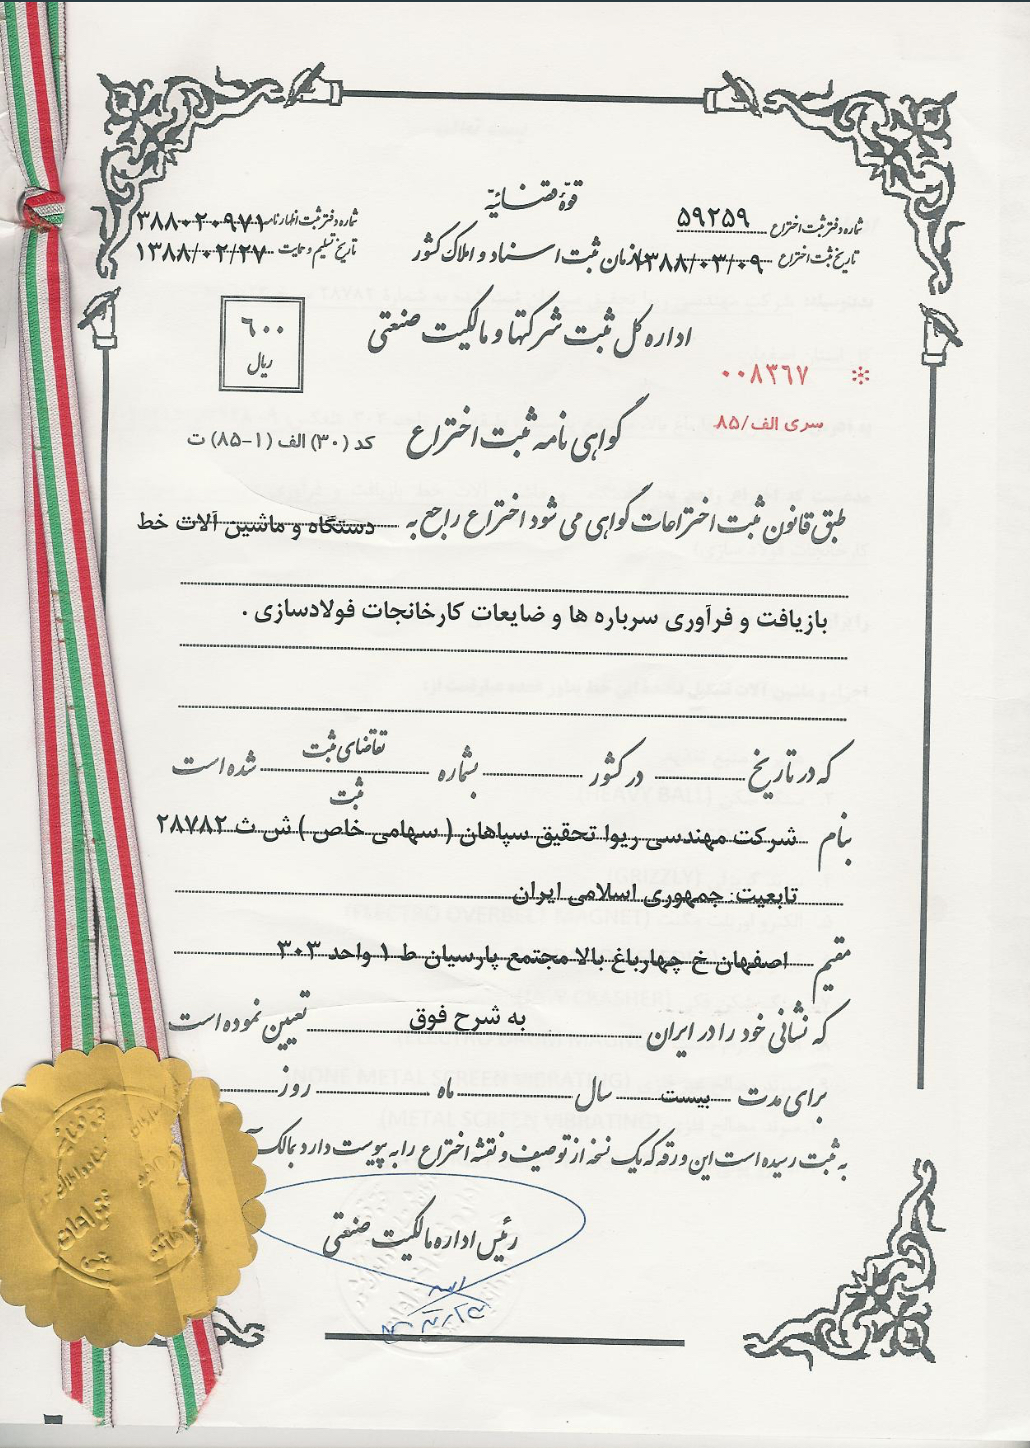 قوّهٔ قضائیّه
شماره دفتر ثبت اختراع ۵۹۲۵۹
شماره دفتر ثبت اظهارنامه ۳۸۸۰۲۰۹۷۱
تاریخ ثبت اختراع ۱۳۸۸/۰۳/۰۹
سازمان ثبت اسناد و املاک کشور
تاریخ تسلیم و حمایت ۱۳۸۸/۰۲/۲۷
اداره کل ثبت شرکتها و مالکیت صنعتی
۶۰۰
ریال
* ۰۰۸۳۶۷
سری الف/۸۵
گواهی نامه ثبت اختراع
کد (۳۰) الف (۱-۸۵) ت
طبق قانون ثبت اختراعات گواهی می شود اختراع راجع به دستگاه و ماشین آلات خط
بازیافت و فرآوری سرباره ها و ضایعات کارخانجات فولادسازی .
که در تاریخ در کشور بشماره تقاضای ثبت شده است
ثبت
بنام شرکت مهندسی ریوا تحقیق سپاهان ( سهامی خاص ) ش ث ۲۸۷۸۲
تابعیت: جمهوری اسلامی ایران
مقیم اصفهان خ چهارباغ بالا مجتمع پارسیان ط ۱ واحد ۳۰۳
که نشانی خود را در ایران به شرح فوق تعیین نموده است
برای مدت بیست سال ماه روز
به ثبت رسیده است این ورقه که یک نسخه از توصیف و نقشه اختراع را به پیوست دارد بمالک
رئیس اداره مالکیت صنعتی